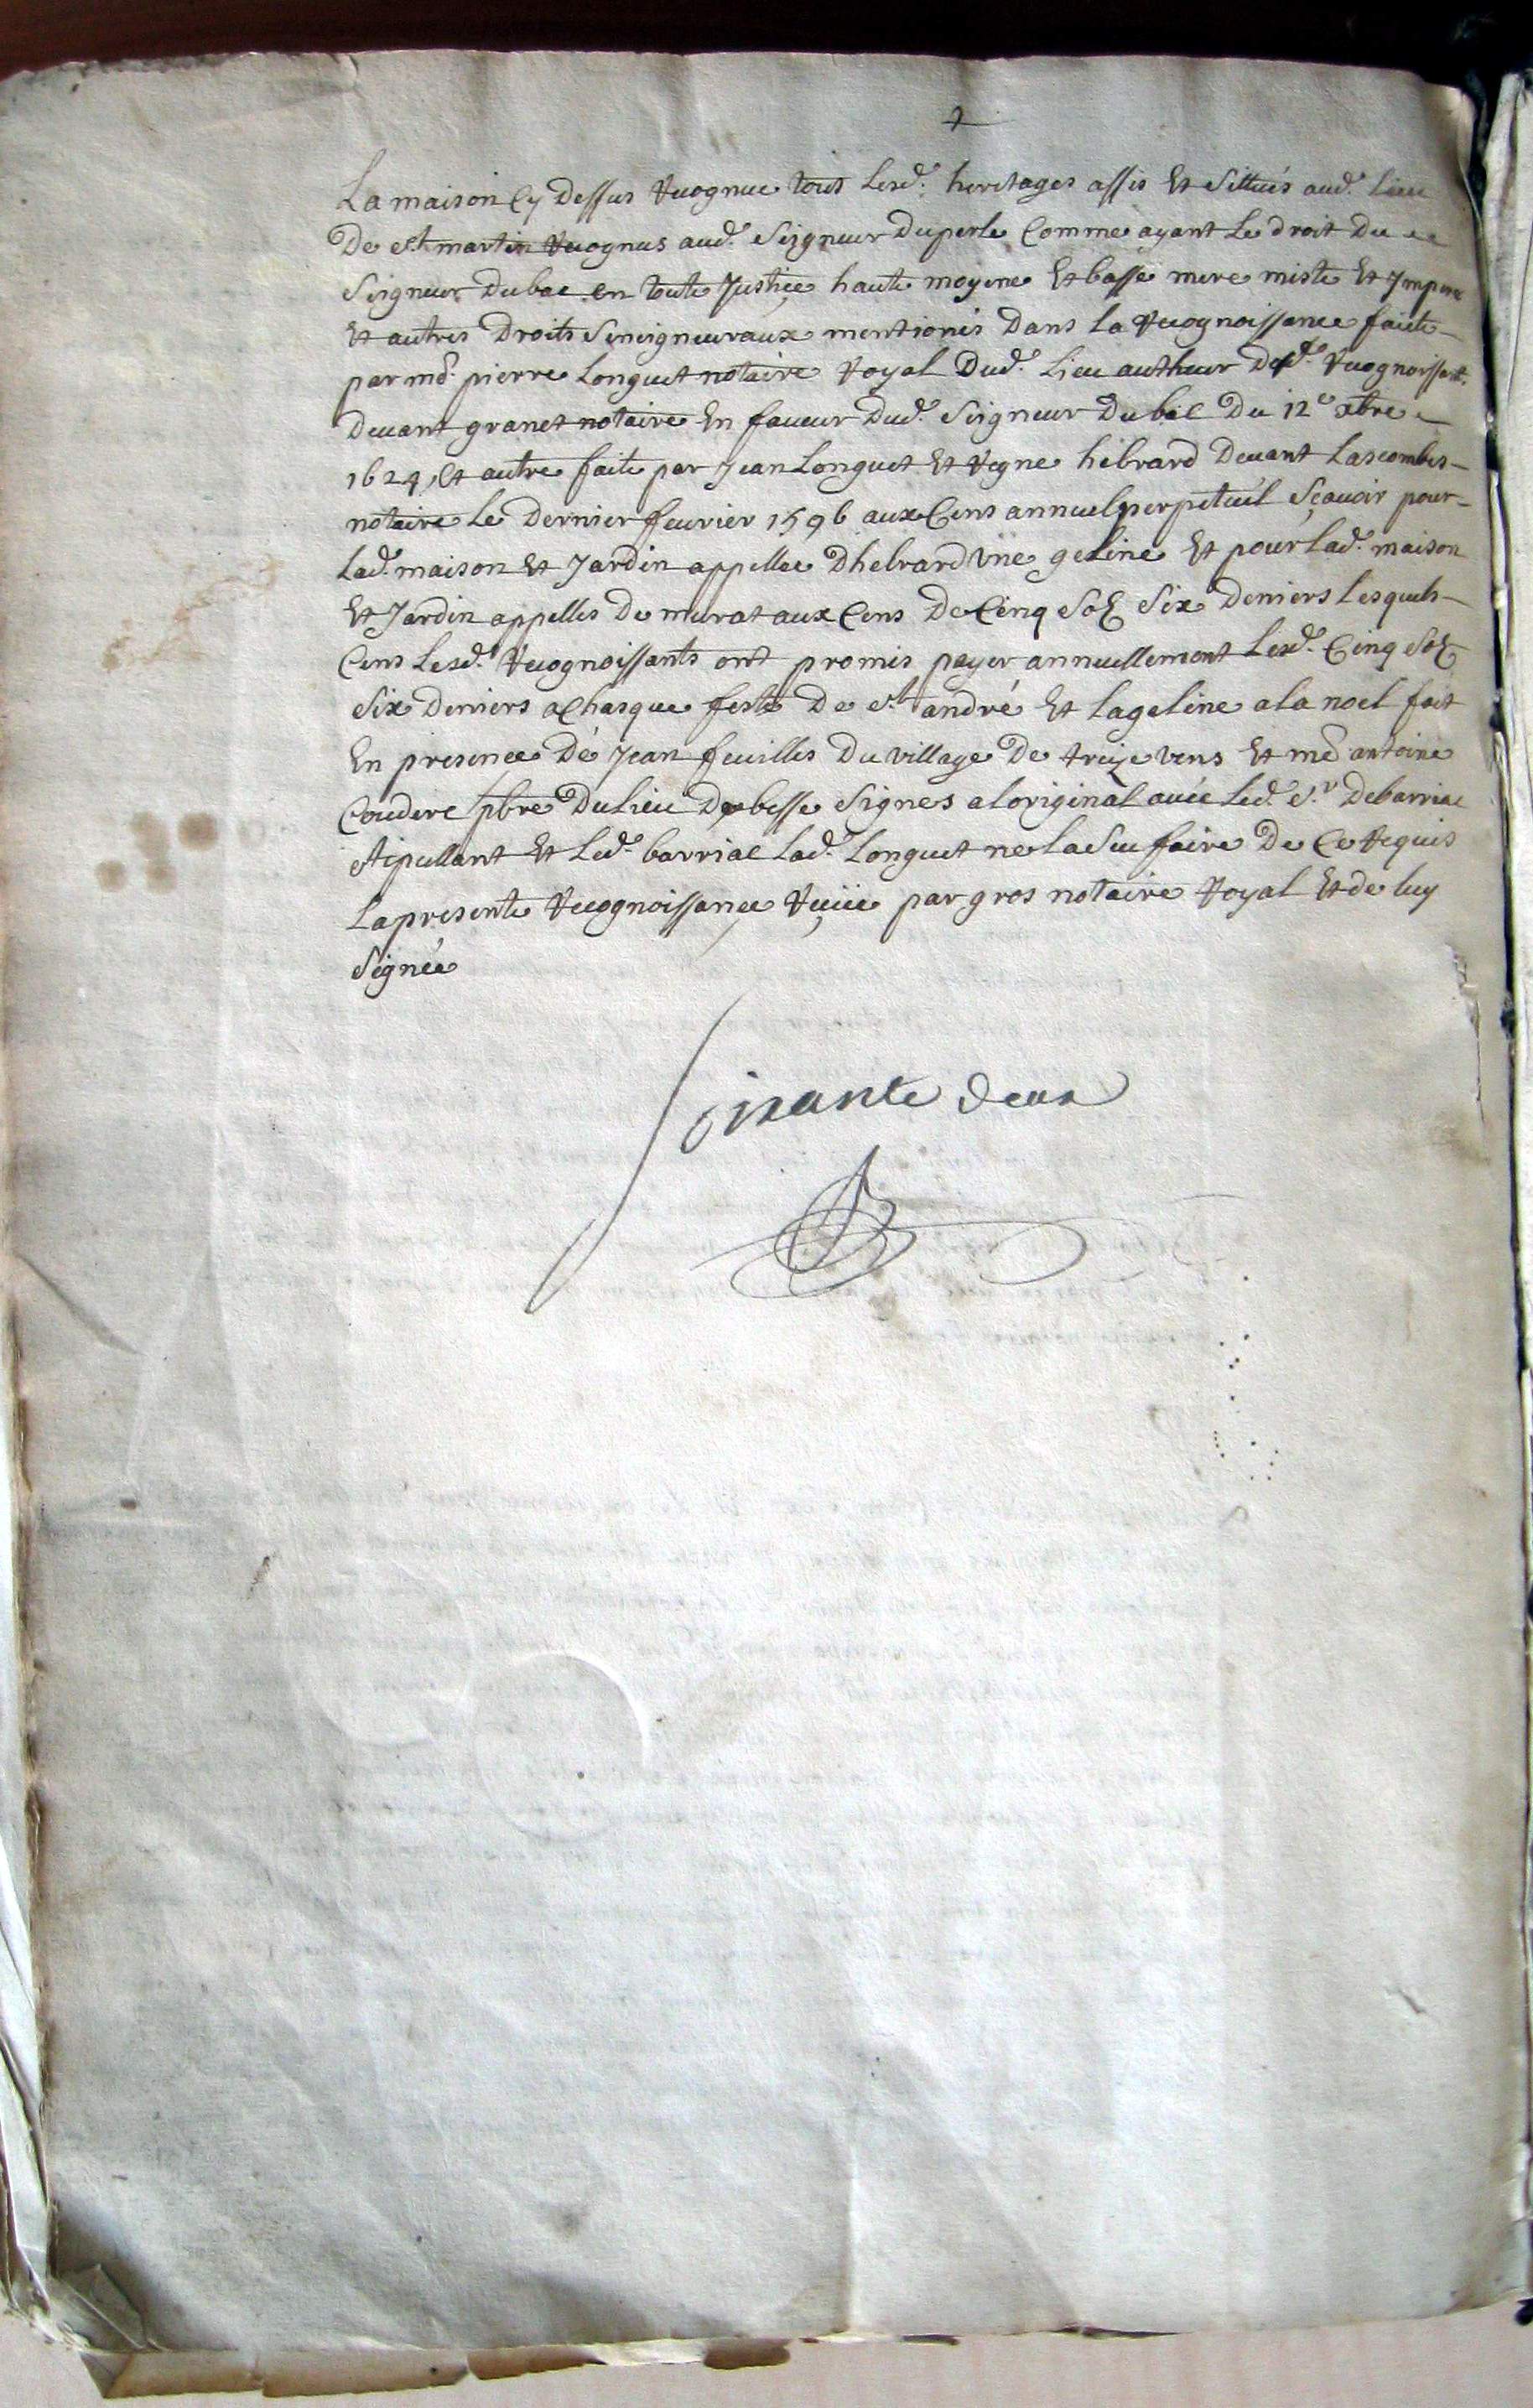 La maison Cy Dessus Recognue tous Lesd. heritages assis Et Sittués aud. Lieu
De st martin Recognus aud. Seigneur Duperle Comme ayant Le droit Du
Seigneur Dubac en toute Justice haute moyene Et basse mere miste Et Impere
Et autres Droits Seneigneuraux mentionés Dans La Recognoissance faite
par me. pierre Longuet notaire Royal Dud. Lieu autheur Desd. Recognoissants.
Devant granet notaire En faveur Dud. Seigneur Dubac Du 12e xbre
1624, Et autre faite par Jean Longuet Et Regne hebrard Devant Lascombes
notaire Le Dernier fevrier 1596 aux Cens annuel perpetuél Sçavoir pour
Lad. maison Et Jardin appellee Dhebrard Vne geline Et pour Lad. maison
Et Jardin appelles De murat aux Cens De Cinq Solz Six Deniers Lesquels
Cens Lesd. Recognoissants ont promis payer annuellement Lesd. Cinq Solz
Six Deniers a Chasque feste De st andré Et La geline a la noel fait
En presence De Jean feuilles Du village De treize vens Et me antoine
Couderc pbre Du Lieu De besse Signes a loriginal avec Led. Sr. Debarriac
Stipullant Et Led. barriac Lad. Longuet ne La Sçu faire De Ce Requis
La presente Recognoissance Reçüe par gros notaire Royal Et de luy
Signée
Soixante deux